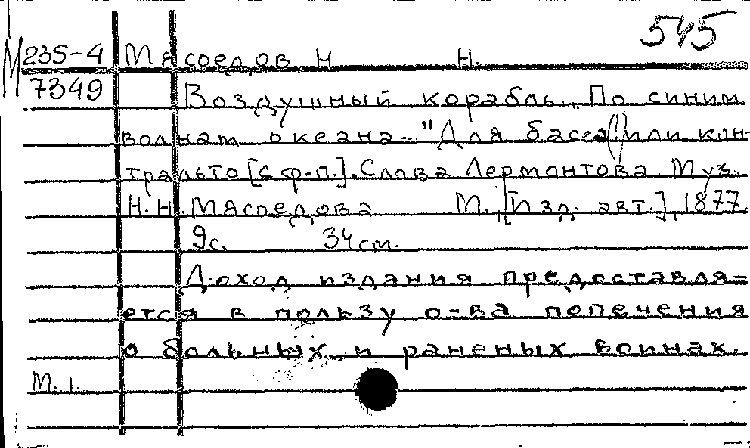 545
М 235-4 Мясоедов Н. Н.
7349 Воздушный корабль. "По синим
волнам океана..." Для баса или кон-
тральто [с ф-п.]. Слова Лермонтова Муз.
Н.Н. Мясоедова М., [Изд. авт.], 1877.
9с. 34см.
Доход издания предоставля-
ется в пользу о-ва попечения
о больных и раненых воинах.
М. 1.